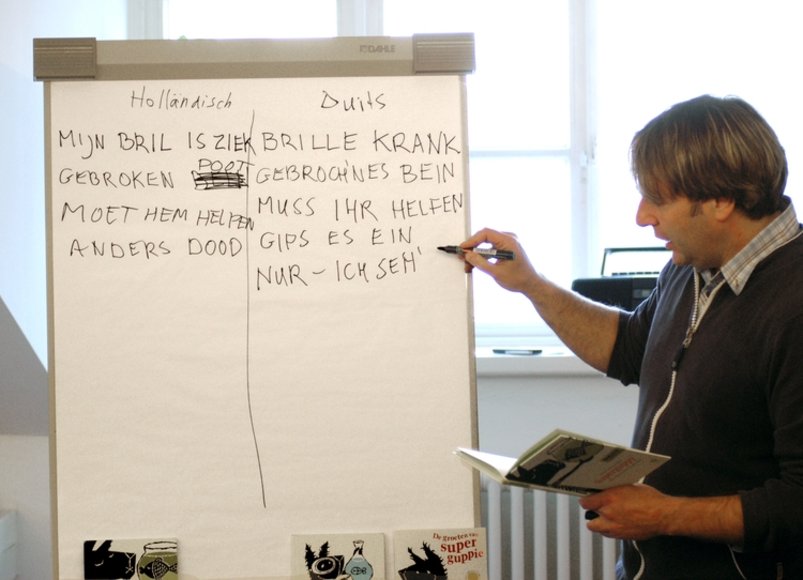 DAHLE
Holländisch
MIJN BRIL IS ZIEK
GEBROKEN POOT
MOET HEM HELPEN
ANDERS DOOD
Duits
BRILLE KRANK
GEBROCH'NES BEIN
MUSS IHR HELFEN
GIPS ES EIN
NUR - ICH SEH'
De groeten van
super
guppie